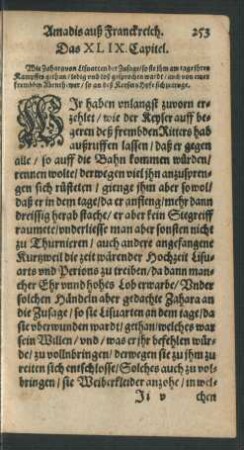 Amadis auß Franckreich. 253
Das XLIX. Capitel.
Wie Zahara von Lisuarten der Zusage/so sie ihm am tage ihres
Kampffes gethan/ledig vnd loß gesprochen wardt/auch von einer
frembden Abentheuer/so an deß Keysers Hofe sich zutruge.
WIr haben vnlangst zuvorn er-
zehlet/wie der Keyser auff be-
geren deß frembden Ritters hab
außruffen lassen/daß er gegen
alle/so auff die Bahn kommen würden/
rennen wolte/derwegen viel ihn anzuspren-
gen sich rüsteten/gienge jhm aber so wol/
daß er in dem tage/da er anfieng/mehr dann
dreissig herab stache/er aber kein Stegreiff
raumete/vnderliesse man aber sonsten nicht
zu Thurnieren/auch andere angefangene
Kurtzweil die zeit wärender Hochzeit Lisu-
arts vnd Perions zu treiben/da dann man-
cher Ehr vnnd hohes Lob erwarbe/Vnder
solchen Händeln aber gedachte Zahara an
die Zusage/so sie Lisuarten an dem tage/da
sie vberwunden wardt/gethan/welches war
sein Willen/vnd/was er jhr befehlen wür-
de/zu vollnbringen/derwegen sie zu jhm zu
reiten sich entschlosse/Solches auch zu vol-
bringen/sie Weiberkleider anzohe/in wel-
Ji v chen